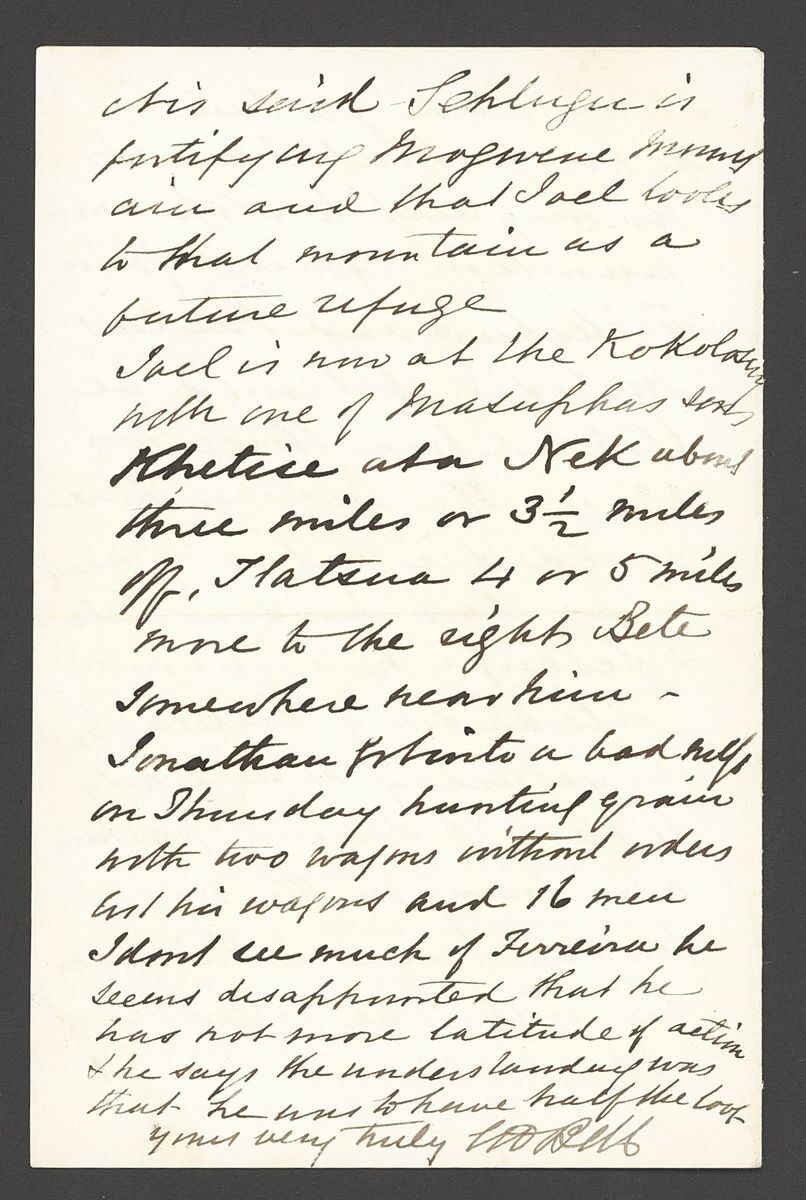 It is said Sehlugu is
fortifying Mogwene Mount
ain and that Joel looks
to that mountain as a
future refuge
Joel is now at the Kokolosing
with one of Masuphas sons
Khetise at a Nek about
three miles or 3½ miles
off, Tlatsua 4 or 5 miles
more to the right Bete
somewhere near him -
Jonathan got into a bad
on Thursday hunting grain
with two wagons without orders
lost his wagons and 16 men
I dont see much of Ferreira he
seems disappointed that he
has not more latitude of action
& he says the understanding was
that he was to have half the loot
yours very truly